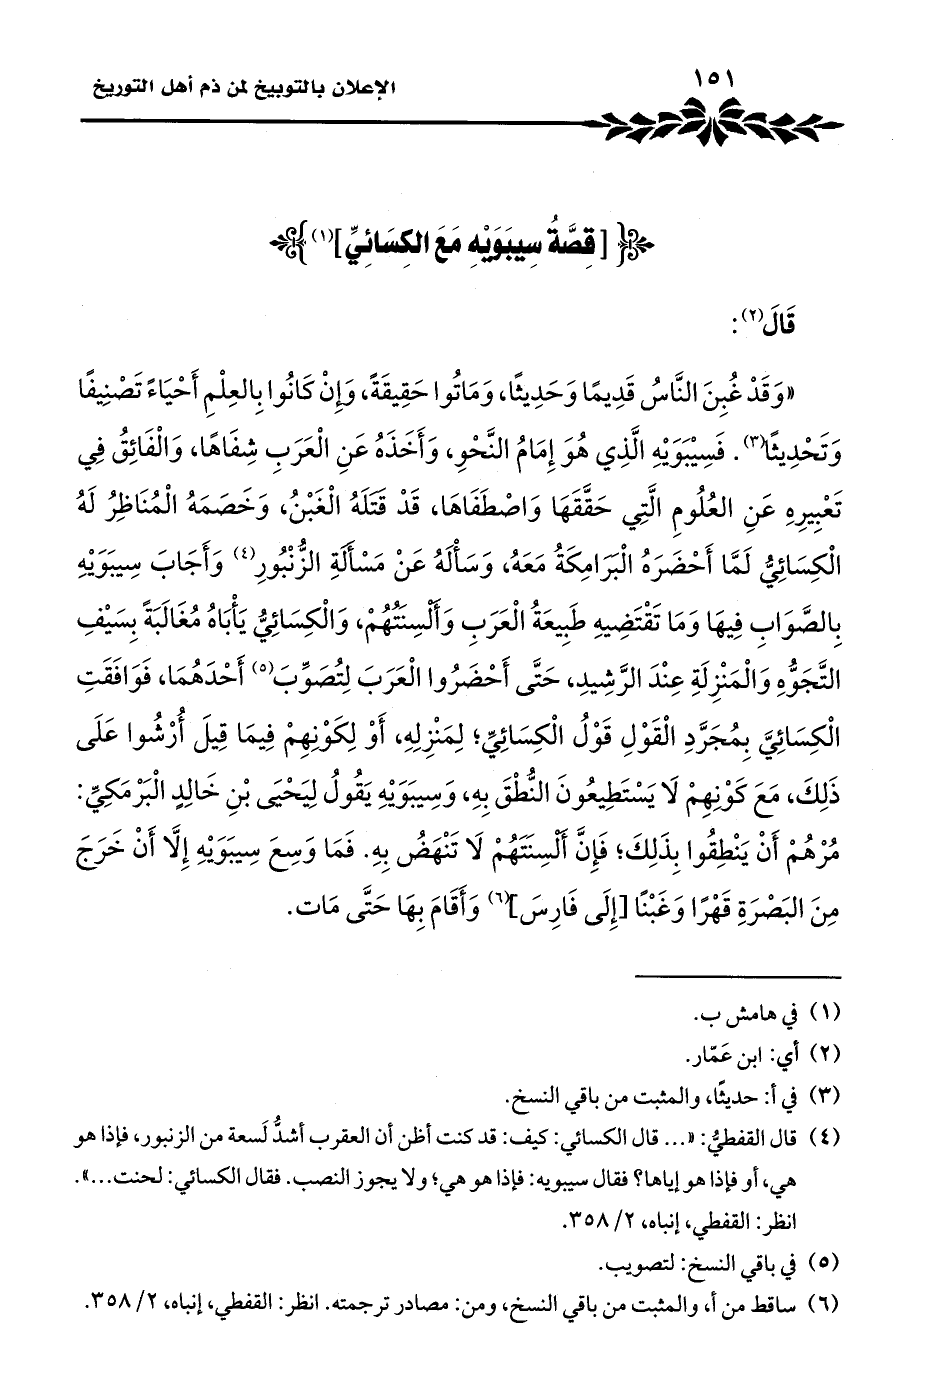 ١٥١
الإعلان بالتوبيخ لمن ذم أهل التوريخ
[قِصَّةُ سِيبَوَيْهِ مَعَ الكِسَائِيِّ](١)
قَالَ(٢):
«وَقَدْ غُبِنَ النَّاسُ قَدِيمًا وَحَدِيثًا، وَمَاتُوا حَقِيقَةً، وَإِنْ كَانُوا بِالعِلْمِ أَحْيَاءً تَصْنِيفًا
وَتَحْدِيثًا(٣). فَسِيْبَوَيْهِ الَّذِي هُوَ إِمَامُ النَّحْوِ، وَأَخَذَهُ عَنِ الْعَرَبِ شِفَاهًا، وَالْفَائِقُ فِي
تَعْبِيرِهِ عَنِ العُلُومِ الَّتِي حَقَّقَهَا وَاصْطَفَاهَا، قَدْ قَتَلَهُ الْغَبْنُ، وَخَصَمَهُ الْمُنَاظِرُ لَهُ
الْكِسَائِيُّ لَمَّا أَحْضَرَهُ الْبَرَامِكَةُ مَعَهُ، وَسَأَلَهُ عَنْ مَسْأَلَةِ الزُّنْبُورِ(٤) وَأَجَابَ سِيبَوَيْهِ
بِالصَّوَابِ فِيهَا وَمَا تَقْتَضِيهِ طَبِيعَةُ الْعَرَبِ وَأَلْسِنَتُهُمْ، وَالْكِسَائِيُّ يَأْبَاهُ مُغَالَبَةً بِسَيْفِ
التَّجَوُّهِ وَالْمَنْزِلَةِ عِنْدَ الرَّشِيدِ، حَتَّى أَحْضَرُوا الْعَرَبَ لِتُصَوِّبَ(٥) أَحْدَهُمَا، فَوَافَقَتِ
الْكِسَائِيَّ بِمُجَرَّدِ الْقَوْلِ قَوْلُ الْكِسَائِيِّ؛ لِمَنْزِلِهِ، أَوْ لِكَوْنِهِمْ فِيمَا قِيلَ أُرْشُوا عَلَى
ذَلِكَ، مَعَ كَوْنِهِمْ لَا يَسْتَطِيعُونَ النُّطْقَ بِهِ، وَسِيبَوَيْهِ يَقُولُ لِيَحْيَى بْنِ خَالِدٍ الْبَرْمَكِيِّ:
مُرْهُمْ أَنْ يَنْطِقُوا بِذَلِكَ؛ فَإِنَّ أَلْسِنَتَهُمْ لَا تَنْهَضُ بِهِ. فَمَا وَسِعَ سِيبَوَيْهِ إِلَّا أَنْ خَرَجَ
مِنَ البَصْرَةِ قَهْرًا وَغَبْنًا [إِلَى فَارِسَ](٦) وَأَقَامَ بِهَا حَتَّى مَات.
(١) في هامش ب.
(٢) أي: ابن عَمّار.
(٣) في أ: حديثًا، والمثبت من باقي النسخ.
(٤) قال القفطيُّ: «... قال الكسائي: كيف: قد كنت أظن أن العقرب أشدُّ لَسعة من الزنبور، فإذا هو
هي، أو فإذا هو إياها؟ فقال سيبويه: فإذا هو هي؛ ولا يجوز النصب. فقال الكسائي: لحنت...».
انظر: القفطي، إنباه، ٢/ ٣٥٨.
(٥) في باقي النسخ: لتصويب.
(٦) ساقط من أ، والمثبت من باقي النسخ، ومن: مصادر ترجمته. انظر: القفطي، إنباه، ٢/ ٣٥٨.